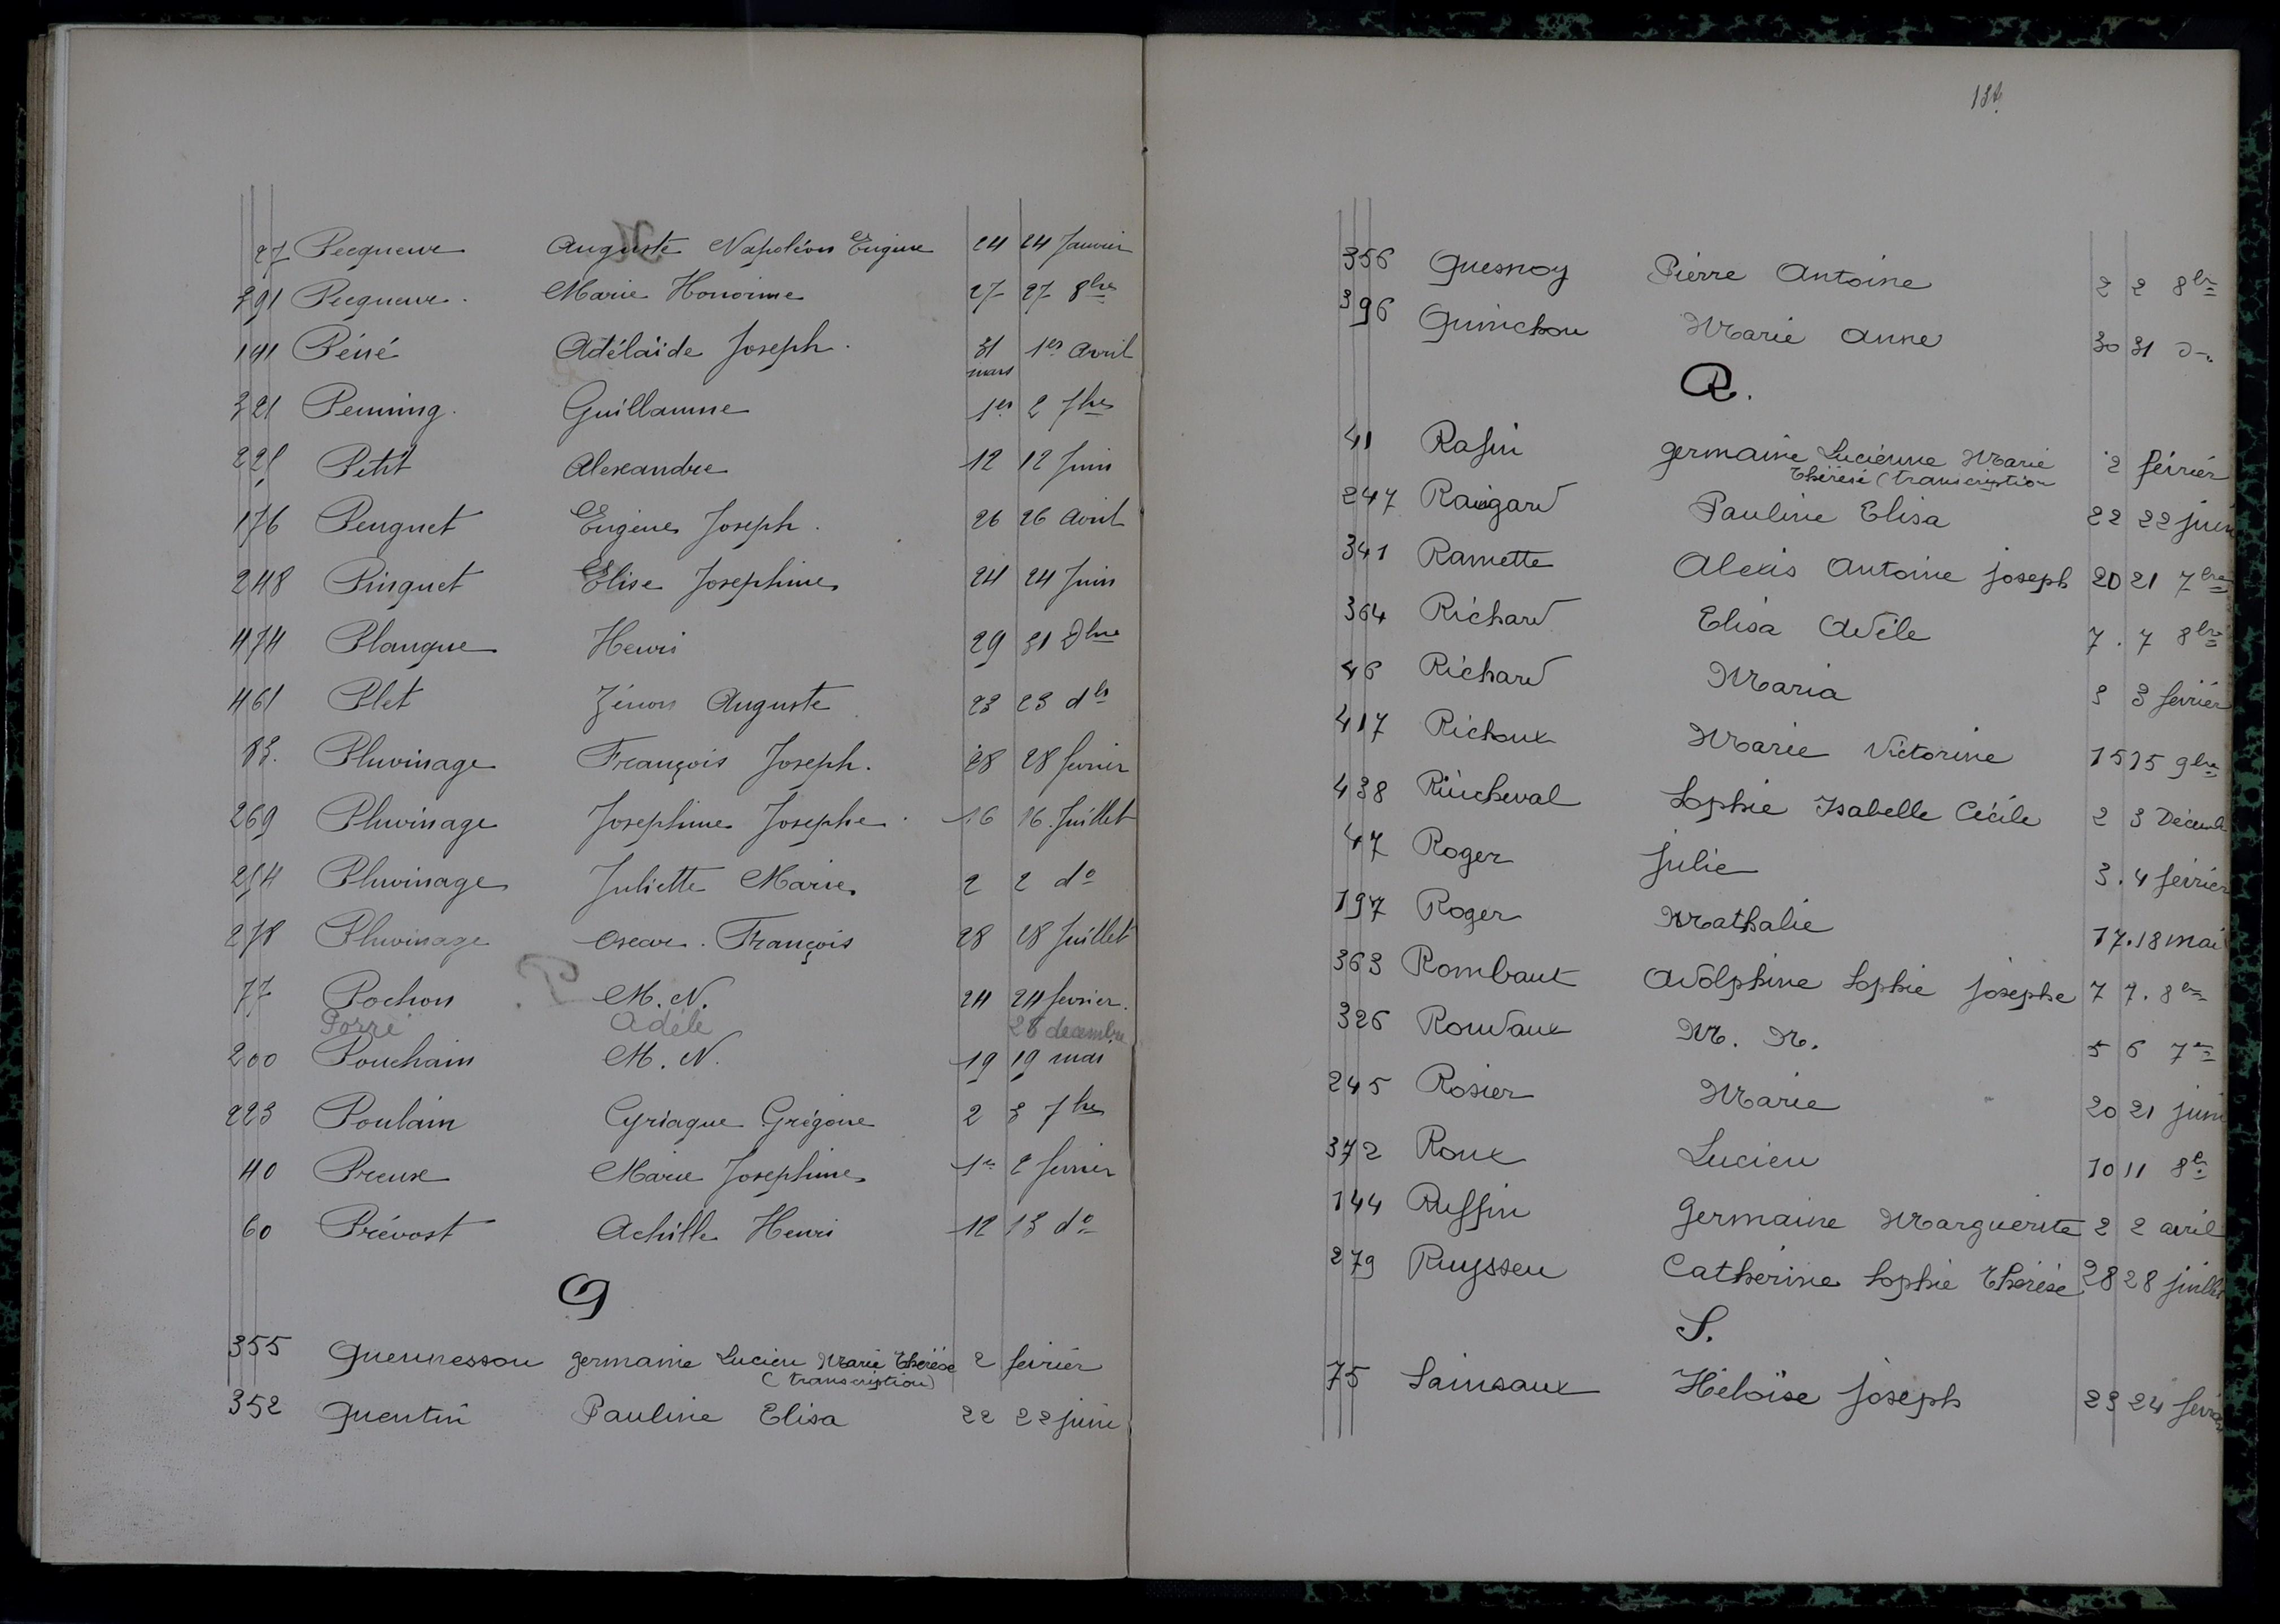 27 Pecqueur Auguste Napoléon Eugène 24 24 Janvier
391 Pecqueur. Marie Honorine 27 27 8bre
141 Péné Adélaïde Joseph. 31 mars 1er avril
321 Penning. Guillaume 1er 2 7bre
Petit Alexandre 12 12 Juin
176 Peuguet Eugène Joseph. 26 26 avril
248 Pinquet Elise Joséphine 24 24 Juin
474 Planque Henri 29 31 Dbre
461 Plet Zénon Auguste 23 23 do
83. Pluvinage François Joseph. 28 28 février
269 Pluvinage Joséphine Josephe 16 16 Juillet
254 Pluvinage Juliette Marie 2 2 do
278 Pluvinage Oscar. François 28 28 Juillet
P.
77 Pochon M. N. 24 24 février.
Porre Adèle 28 decembre
200 Pouchain M. N. 19 19 mai
223 Poulain Cyriaque Grégoire 2 3 7bre
40 Preux Marie Joséphine 1er 2 février
60 Prévost Achille Henri 12 13 do
Q
355 Quennesson germaine Lucien Marie Thérèse 2 février
(transcription)
352 Quentin Pauline Elisa 22 22 juin
132
356 Quesnoy Pierre Antoine 2 2 8bre
396 Quinichon Marie Anne 30 31 do
R.
41 Rafin germaine Lucienne Marie 2 février
Thérèse (transcription
247 Raingard Pauline Elisa 22 22 juin
341 Ramette Alexis Antoine joseph 20 21 7bre
364 Richard Elisa Adèle 7. 7 8bre
46 Richard Maria 3 3 février
417 Richoux Marie Victorine 15 15 9bre
438 Rincheval Sophie Isabelle Cécile 2 3 Décemb
47 Roger Julie 3. 4 février
197 Roger Nathalie 17. 18 mai
363 Rombaut Adolphine Sophie josephe 7 7. 8bre
326 Roudaux M. N. 5 6 7re
245 Rosier Marie 20 21 juin
372 Roux Lucien 10 11 8e
144 Ruffin Germaine Marguerite 2 2 avril
279 Ruyssen Catherine Sophie Thérèse 28 28 juillet
S.
75 Sainsaux Héloïse joseph 23 24 février